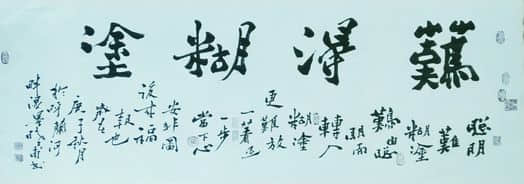 難得糊塗
聰明
難
糊塗
難由聰
明而
轉入
糊塗
更難放
一著退
一步
當下心
安非圖
後來福
報也
歲在
庚子秋月
於呼蘭河
畔
書